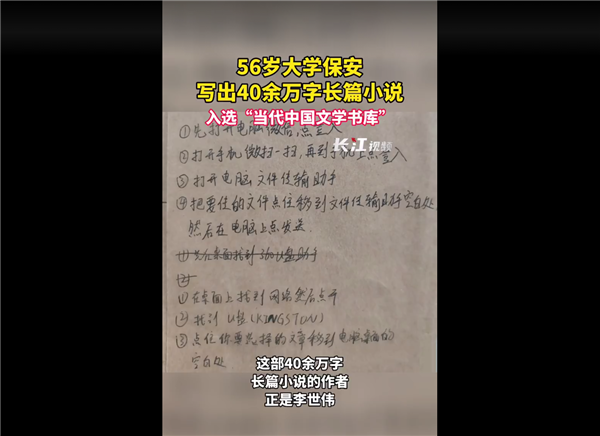 56岁大学保安
写出40余万字长篇小说
入选“当代中国文学书库”
长江视频
①先打开电脑微信,点登入
②打开手机微扫一扫,再到手机上点登入
③打开电脑文件传输助手
④把要传的文件点住移到文件传输助手空白处,
然后在电脑上点发送.
①先在桌面找到360U盘助手
②
①在桌面上找到网络然后点开
②找到U盘(KINGSTON)
③点住你要选择的文章移到电脑桌面的
空白处
这部40余万字
长篇小说的作者
正是李世伟